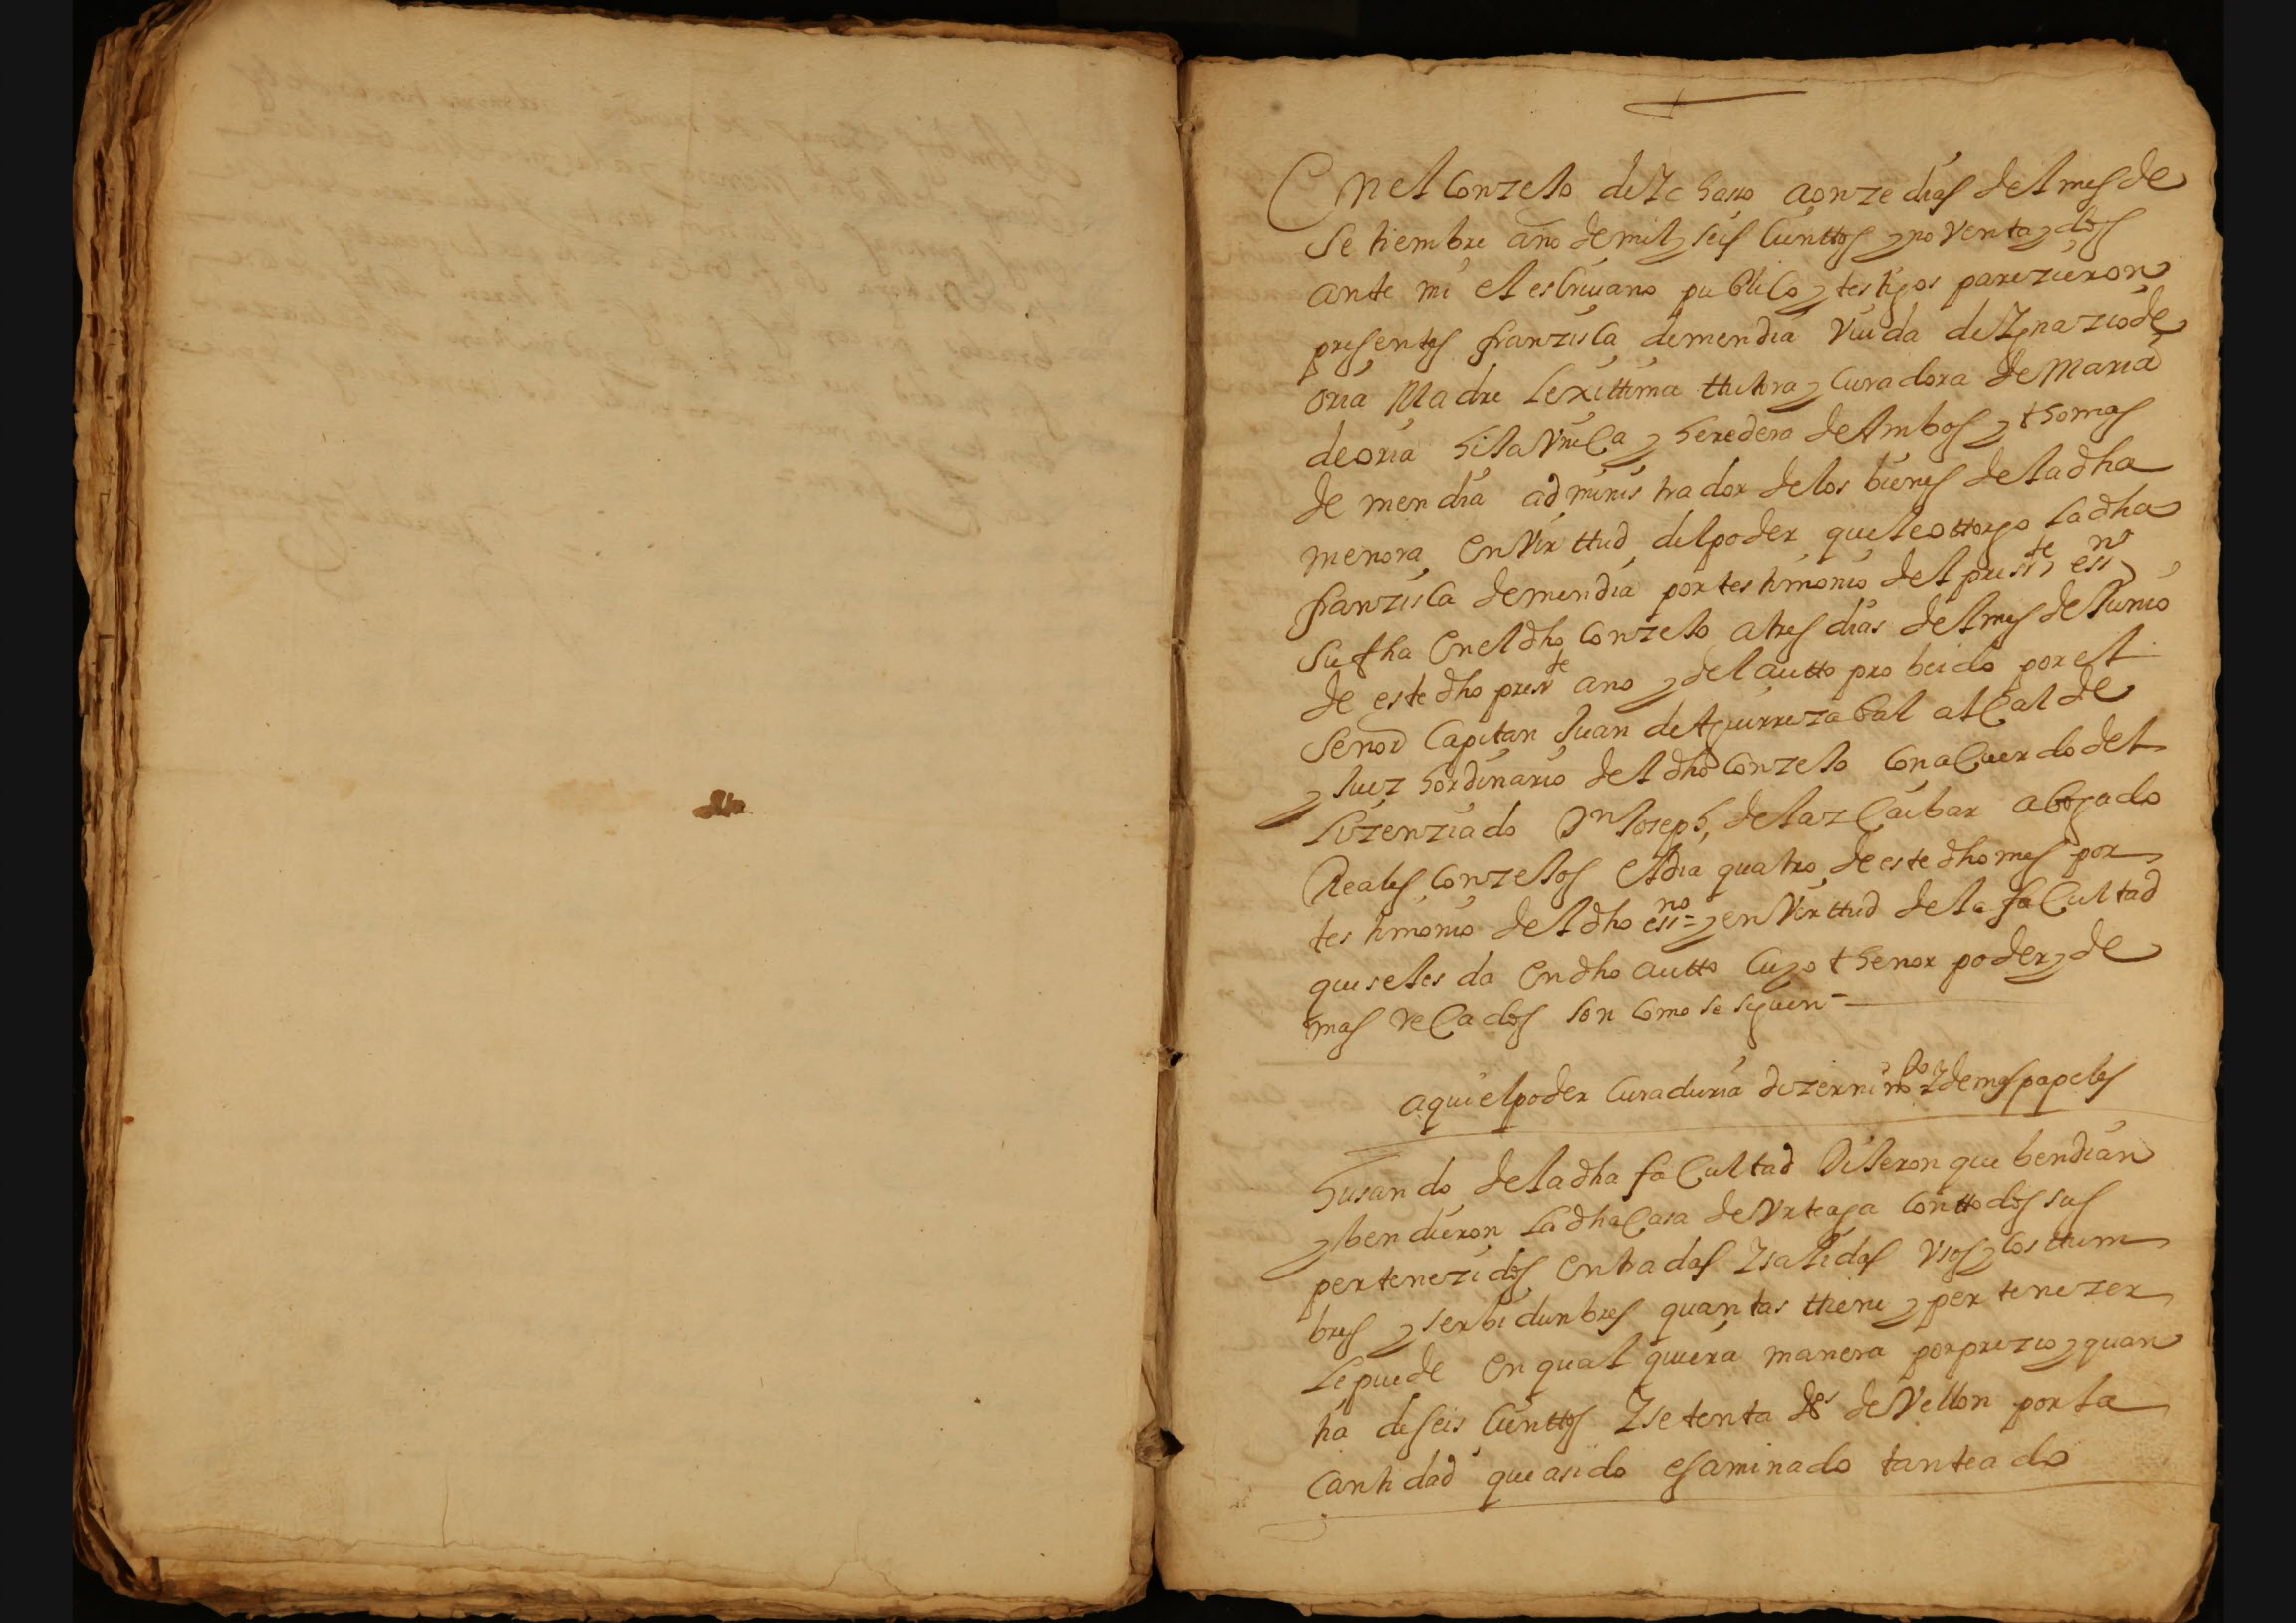 En el Conzejo de Ychaso a onze dias del mes de
setiembre año de mil y seis cienttos y noventa y dos
ante mi el escrivano publico y testigos parezieron
presentes franzisca de mendia viuda de Ygnazio de
oria Madre Lexittima ttutora y curadora de Maria
de oria hija Vnica y heredera de Ambos y thomas
de mendia administrador de los bienes de la dha
menora en virttud del poder que le ottorgo la dha
franzisca de mendia por testimonio del preste essno
su fha en el dho conzejo a tres dias del mes de Junio
de este dho preste año y del autto probeido por el
Señor Capitan Juan de Aguirrezabal alcalde
y Juez hordinario del dho Conzejo con acuerdo del
Lizenziado Dn Joseph de lazcaibar abogado
Reales Conzejos el dia quatro de este dho mes por
testimonio del dho essno = y en virttud de la facultad
que se les da en dho autto cuyo thenor poder y de
mas recados son como se siguen =
aqui el poder curaduria dizernimto y demas papeles
husando de la dha facultad Dijeron que bendian
y bendieron la dha Casa de Vrteaga con ttodos sus
pertenezidos entradas Y salidas Vsos y costtum
bres y serbidunbres quantas ttiene y pertenezer
le puede en qualquiera manera por prezio y quan
tia de seis cienttos Y setenta ds de Vellon por la
cantidad que a sido esaminado tanteado